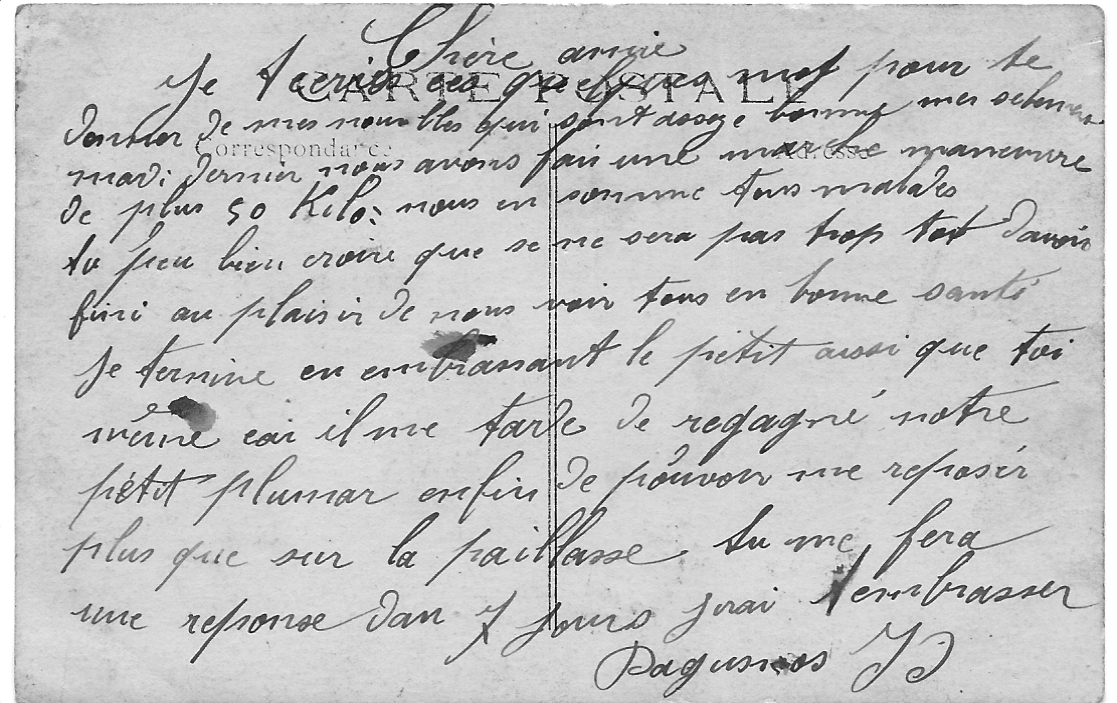 Chère amie
CARTE POSTALE
Je t ecries ces quelques mot pour te
donner de mes nouvelles qui sont assez bonne mes
Correspondance
Adresse
mardi dernier nous avons fai une marche maneuvre
de plus 50 Kilo: nous en somme tous malades
tu peu bien croire que se ne sera pas trop tot d'avoir
fini au plaisir de nous voir tous en bonne santé
Je termine en embrassant le petit aussi que toi
même car il me tarde de regagné notre
pétit plumar enfin de pouvoir me reposér
plus que sur la paillasse tu me fera
une reponse dan 7 jours jrai t'embrasser